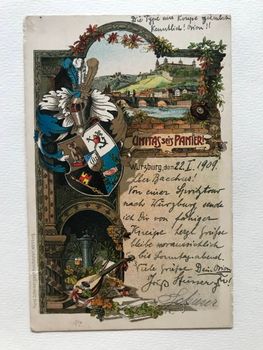 Die Type um Kneipe ziemlich
Kenntlich! Orion!!
UNITAS SEIS PANIER!
Würzburg, den 22.I.1909.
Lieber Bacchus!
Von einer Spritztour
nach Würzburg sende
ich Dir von fähiger
Kneipe herzl. Grüße
bleibe voraussichtlich
bis Sonntag abend.
Viele Grüße Dein Orion